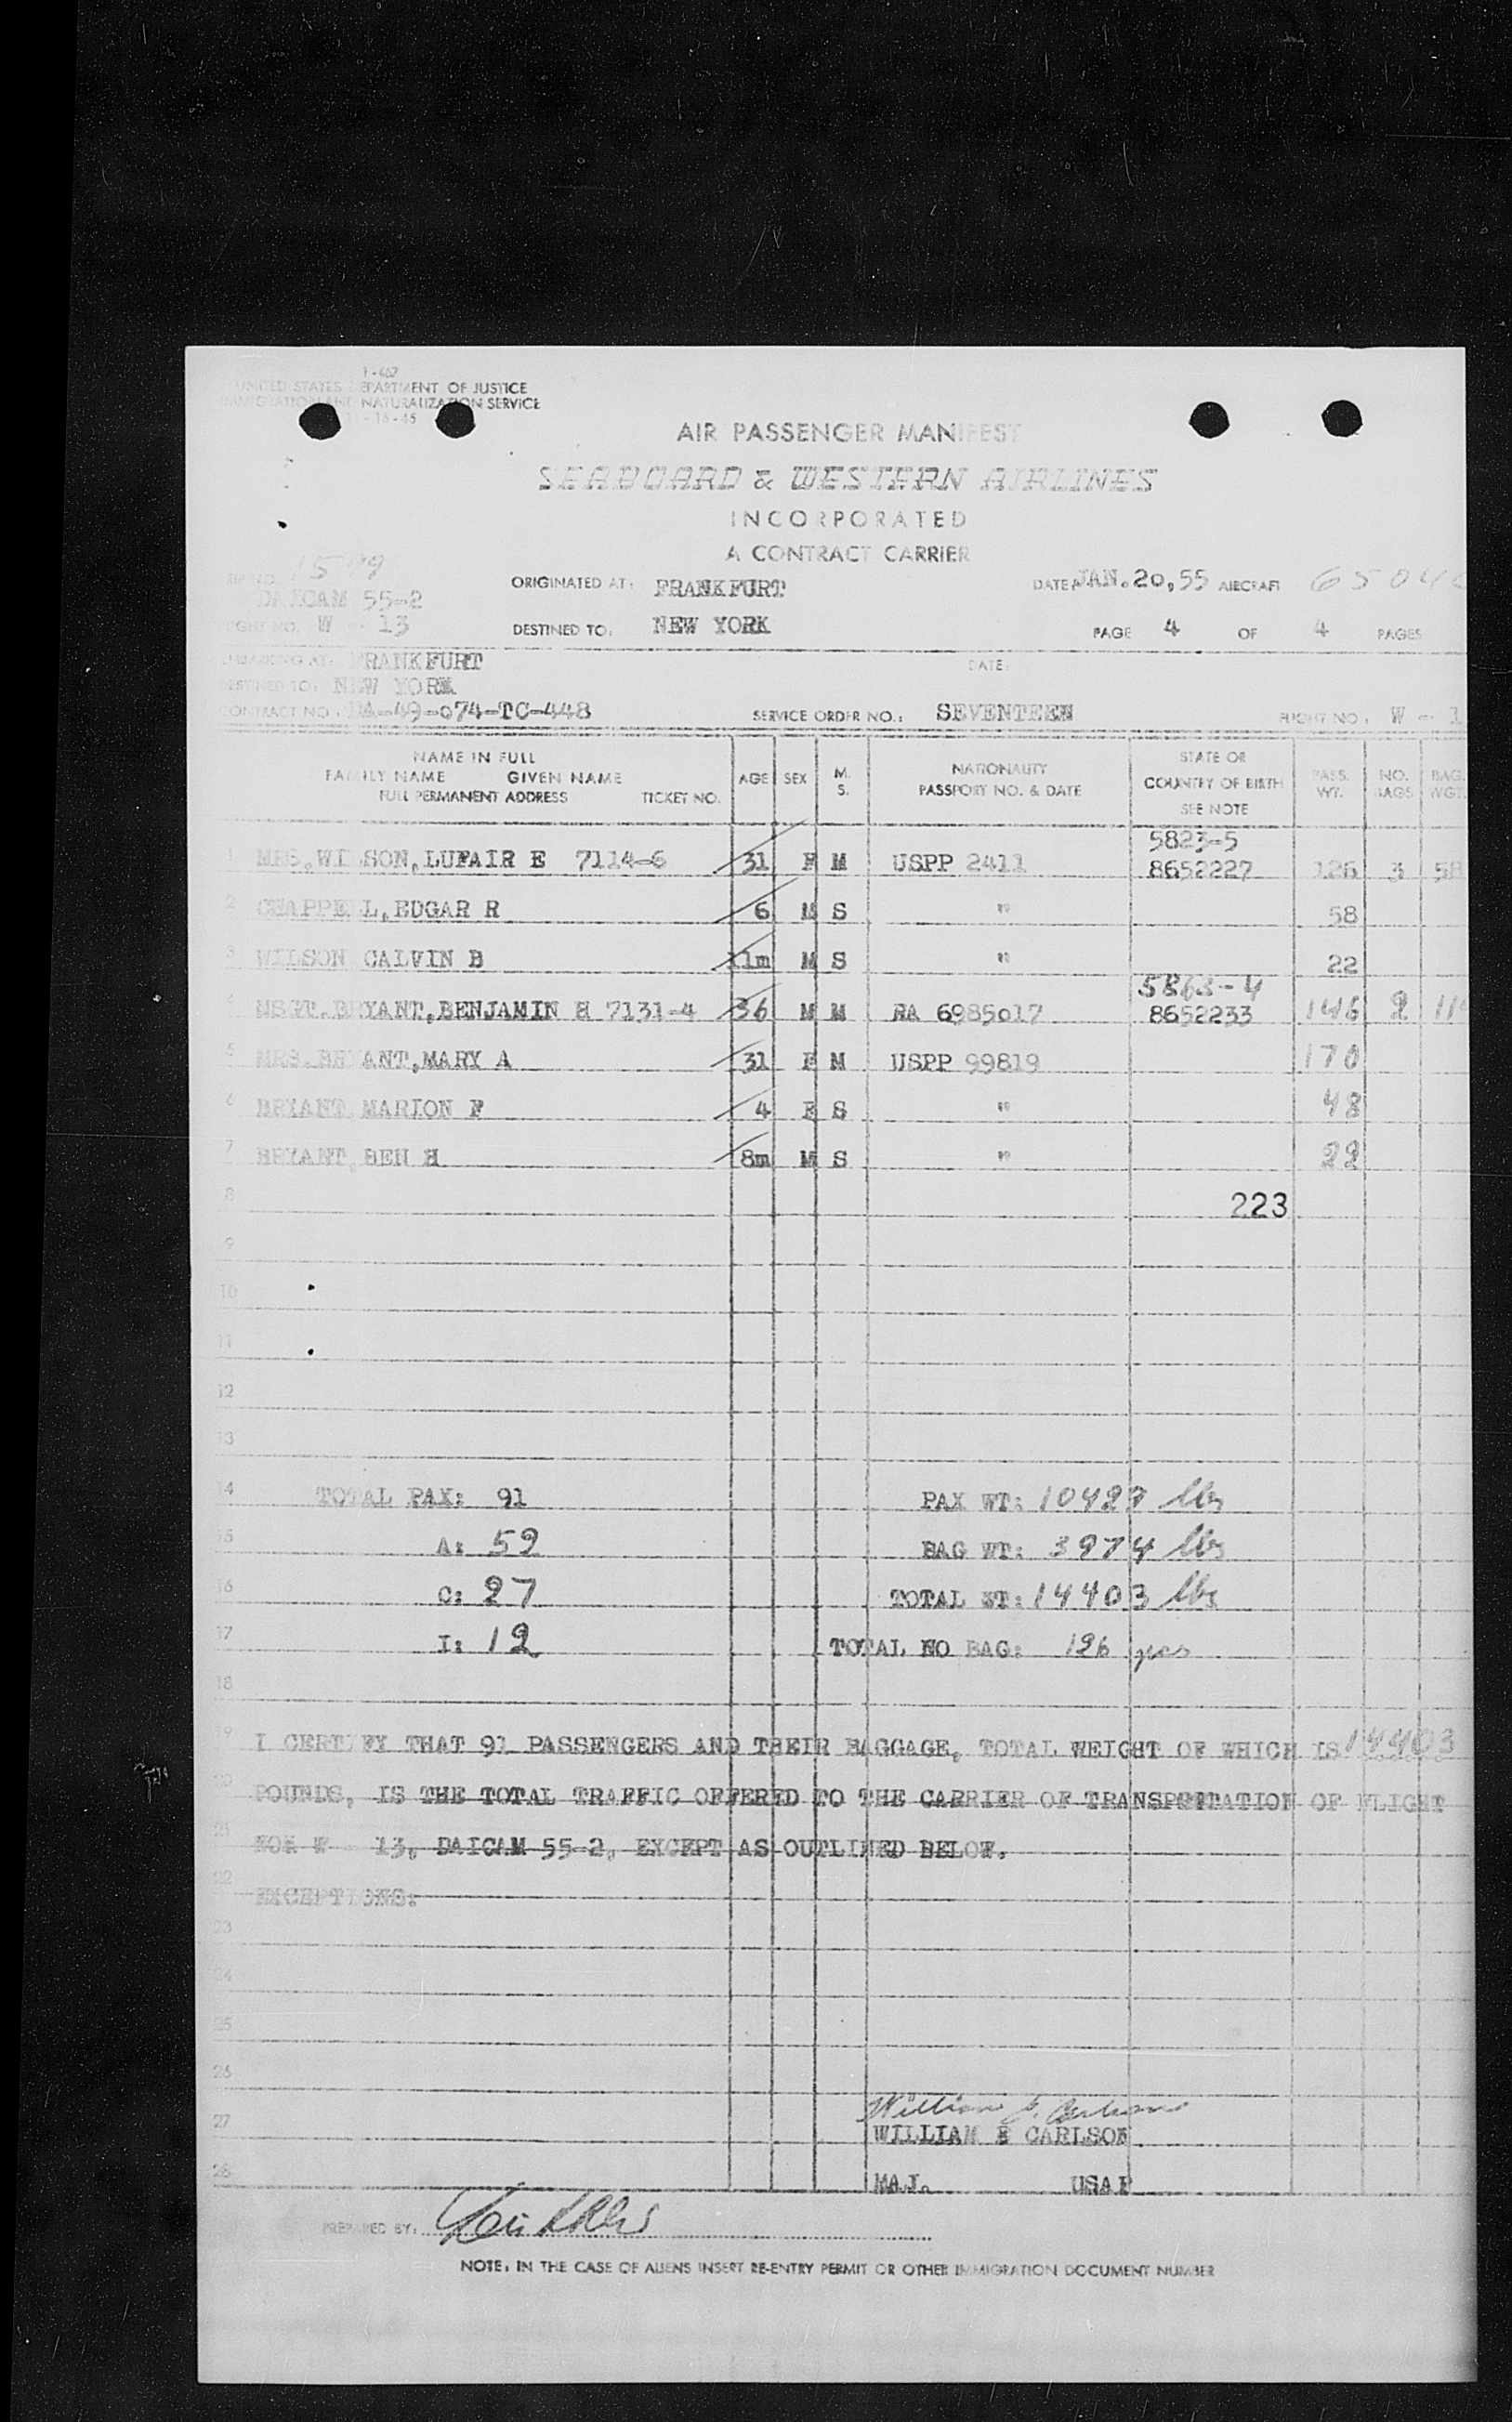 I-462
UNITED STATES DEPARTMENT OF JUSTICE
IMMIGRATION AND NATURALIZATION SERVICE
AIR PASSENGER MANIFEST
SEABOARD & WESTERN AIRLINES
INCORPORATED
A CONTRACT CARRIER
ORIGINATED AT: FRANKFURT DATE JAN. 20, 55 AIRCRAFT
DAICAM 55-2
W - 13 DESTINED TO: NEW YORK PAGE 4 OF 4 PAGES
EMBARKING AT: FRANKFURT DATE:
DESTINED TO: NEW YORK
CONTRACT NO: DA-49-074-TC-448 SERVICE ORDER NO.: SEVENTEEN FLIGHT NO: W - 1
NAME IN FULL
FAMILY NAME GIVEN NAME
FULL PERMANENT ADDRESS TICKET NO. AGE SEX M. S. NATIONALITY PASSPORT NO. & DATE STATE OR COUNTRY OF BIRTH SEE NOTE PASS. WT. NO. BAGS BAG. WGT.
5823-5
1 MRS. WILSON, LUFAIR E 7114-6 31 F M USPP 2411 8652227 126 3 58
2 CHAPPELL, EDGAR R 6 M S " 58
3 WILSON CALVIN B 11m M S " 22
5863-4
4 MSGT. BRYANT, BENJAMIN H 7131-4 36 M M RA 6985017 8652233 146 2
5 MRS. BRYANT, MARY A 31 F M USPP 99819 170
6 BRYANT MARION F 4 F S " 48
7 BRYANT BEN H 8m M S " 22
8 223
9
10
11
12
13
14 TOTAL PAX: 91 PAX WT: 10429 lbs
15 A: 52 BAG WT: 3974 lbs
16 C: 27 TOTAL WT: 14403 lbs
17 I: 12 TOTAL NO BAG: 126 pcs
18
19 I CERTIFY THAT 91 PASSENGERS AND THEIR BAGGAGE, TOTAL WEIGHT OF WHICH IS 14403
20 POUNDS, IS THE TOTAL TRAFFIC OFFERED TO THE CARRIER OF TRANSPORTATION OF FLIGHT
21 FOR W - 13, DAICAM 55-2, EXCEPT AS OUTLINED BELOW.
22 EXCEPTIONS:
23
24
25
26
27 WILLIAM E CARLSON
28 MAJ. USAF
PREPARED BY:
NOTE: IN THE CASE OF ALIENS INSERT RE-ENTRY PERMIT OR OTHER IMMIGRATION DOCUMENT NUMBER